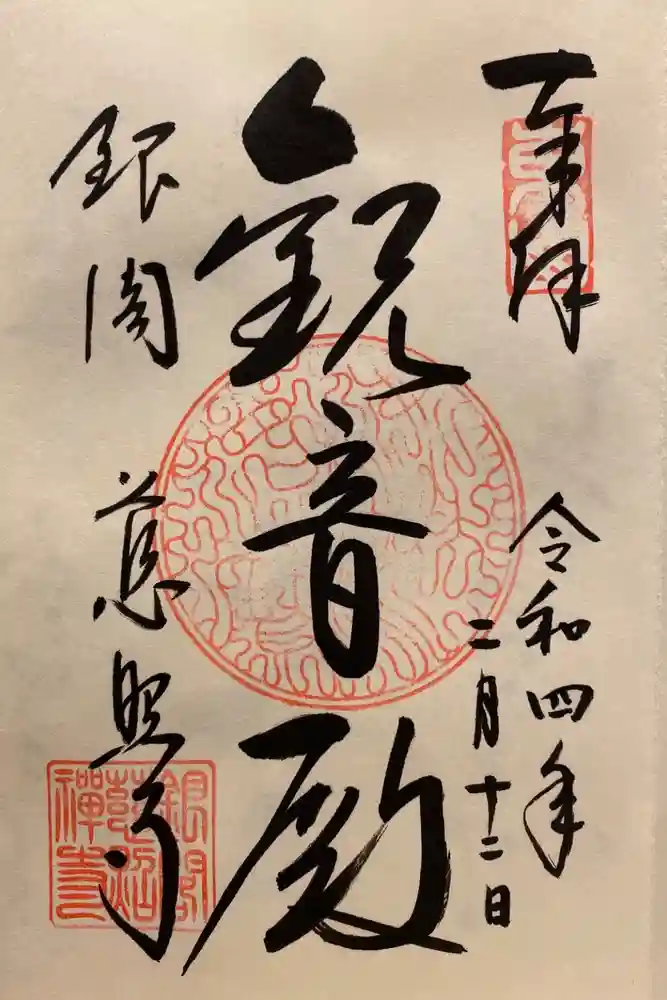 奉拝
令和四年
二月十二日
観音殿
銀閣
慈照寺
銀閣
慈照
禅寺